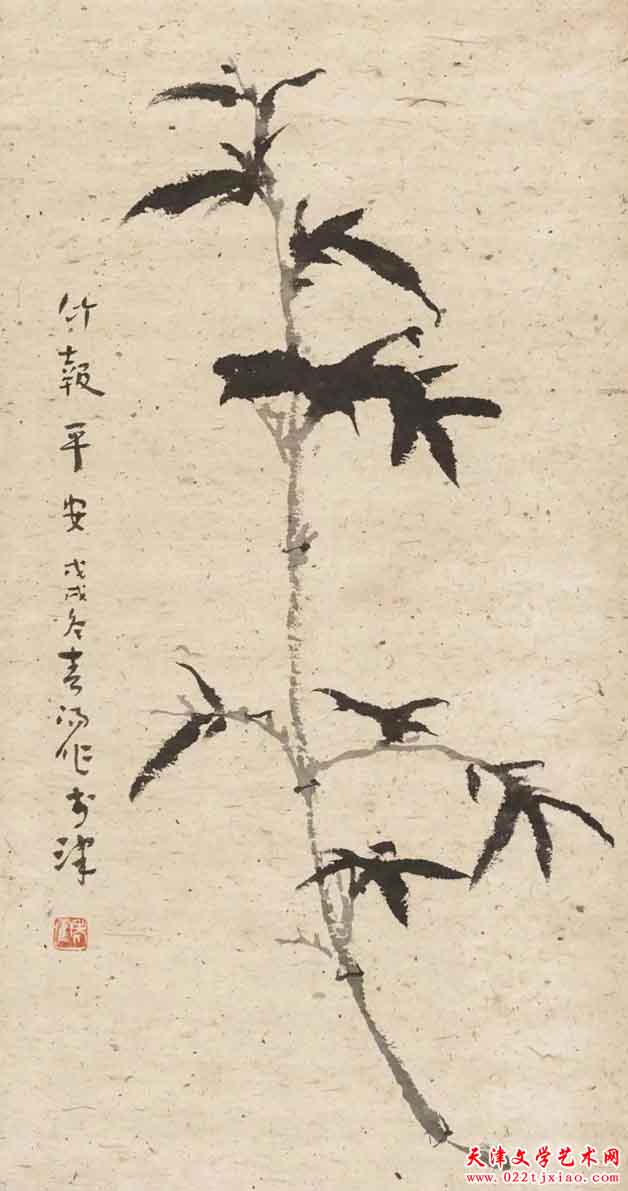 竹報平安 戊戌冬 作於津
天津文学艺术网
www.022tjxiao.com